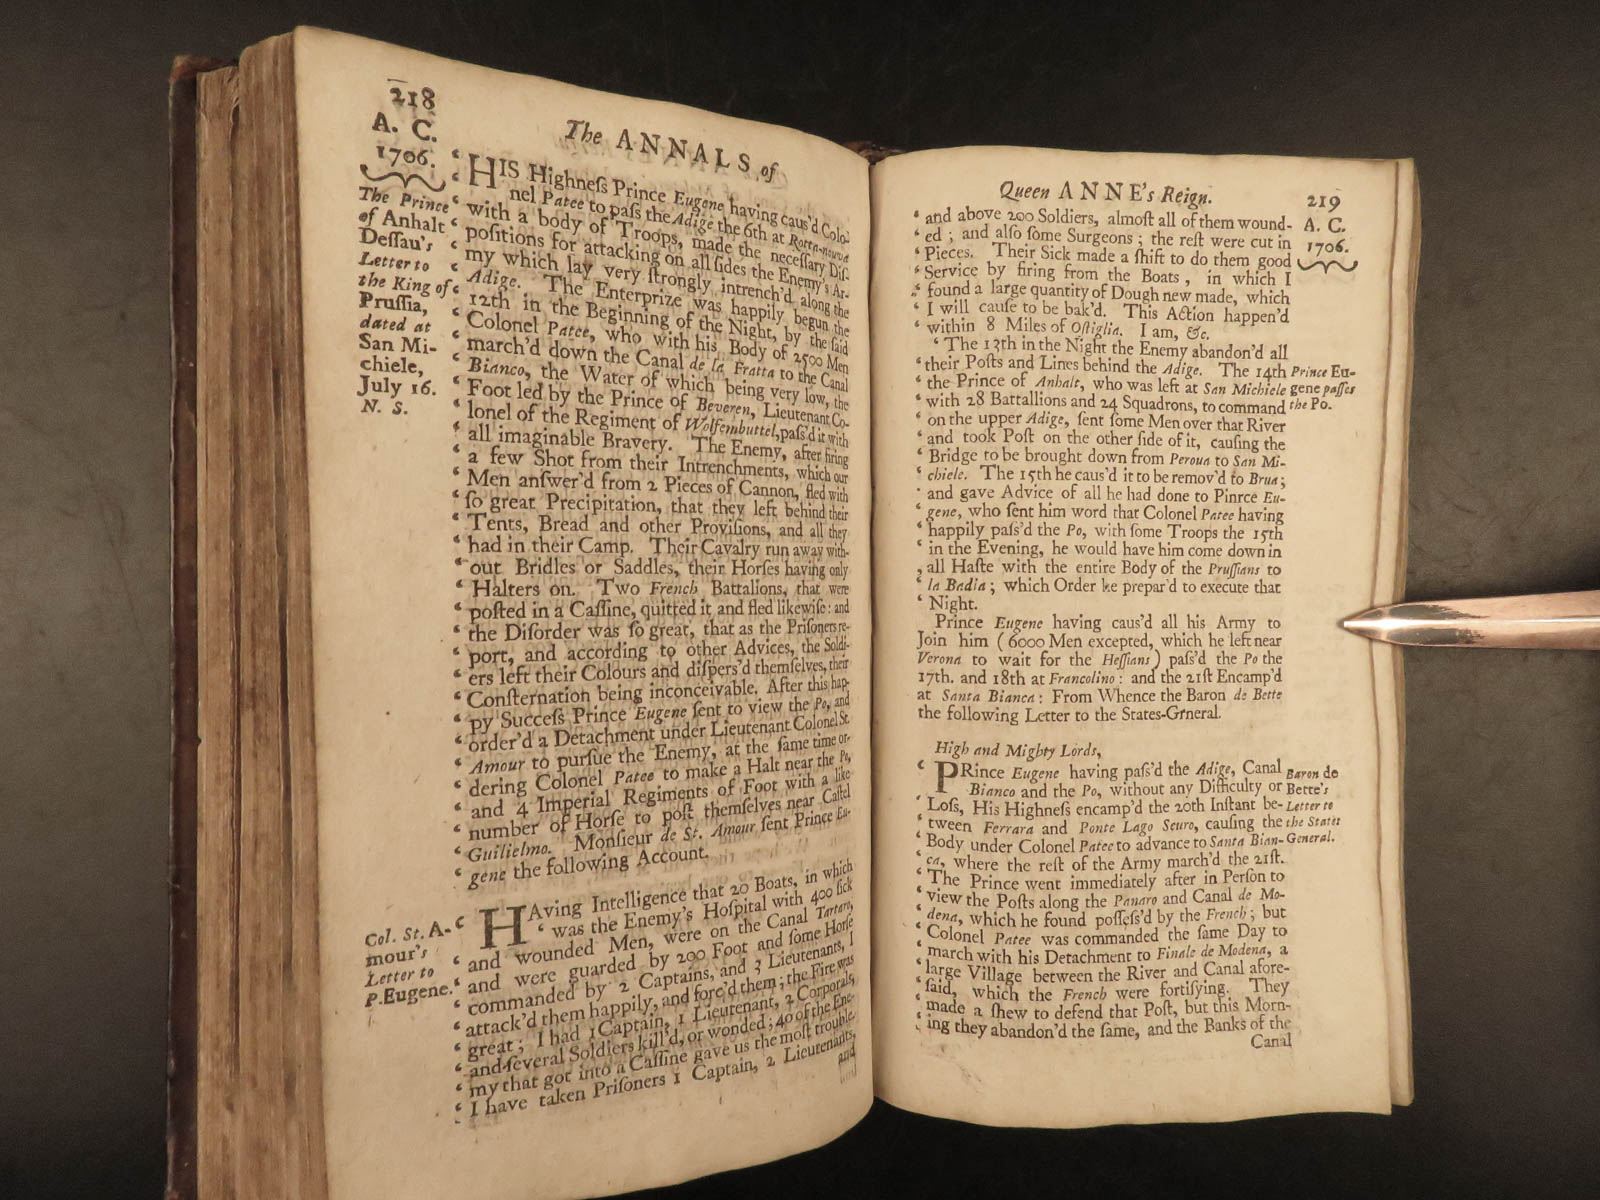 218
The ANNALS of
A. C.
1706.
The Prince
of Anhalt
Deſſau's
Letter to
the King of
Pruſſia,
dated at
San Mi-
chiele,
July 16.
N. S.
‘ HIS Highneſs Prince Eugene having caus'd Colo-
‘ nel Patee to paſs the Adige the 6th at Rotta-nouva
‘ with a body of Troops, made the neceſſary Diſ-
‘ poſitions for attacking on all ſides the Enemy's Ar-
‘ my which lay very ſtrongly intrench'd along the
‘ Adige. The Enterprize was happily begun the
‘ 12th in the Beginning of the Night, by the ſaid
‘ Colonel Patee, who with his Body of 2500 Men
‘ march'd down the Canal de la Fratta to the Canal
‘ Bianco, the Water of which being very low, the
‘ Foot led by the Prince of Beveren, Lieutenant Co-
‘ lonel of the Regiment of Wolfembuttel, paſs'd it with
‘ all imaginable Bravery. The Enemy, after firing
‘ a few Shot from their Intrenchments, which our
‘ Men anſwer'd from 2 Pieces of Cannon, fled with
‘ ſo great Precipitation, that they left behind their
‘ Tents, Bread and other Proviſions, and all they
‘ had in their Camp. Their Cavalry run away with-
‘ out Bridles or Saddles, their Horſes having only
‘ Halters on. Two French Battalions, that were
‘ poſted in a Caſſine, quitted it and fled likewiſe: and
‘ the Diſorder was ſo great, that as the Priſoners re-
‘ port, and according to other Advices, the Soldi-
‘ ers left their Colours and diſpers'd themſelves, their
‘ Conſternation being inconceivable. After this hap-
‘ py Succeſs Prince Eugene ſent to view the Po, and
‘ order'd a Detachment under Lieutenant Colonel St.
‘ Amour to purſue the Enemy, at the ſame time or-
‘ dering Colonel Patee to make a Halt near the Po,
‘ and 4 Imperial Regiments of Foot with a like
‘ number of Horſe to poſt themſelves near Caſtel
‘ Guilielmo. Monſieur de St. Amour ſent Prince Eu-
‘ gene the following Account.
Col. St. A-
mour's
Letter to
P. Eugene.
‘ HAving Intelligence that 20 Boats, in which
‘ was the Enemy's Hoſpital with 400 ſick
‘ and wounded Men, were on the Canal Tartaro,
‘ and were guarded by 200 Foot and ſome Horſe
‘ commanded by 2 Captains, and 3 Lieutenants, I
‘ attack'd them happily, and forc'd them; the Fire was
‘ great; I had 1 Captain, 1 Lieutenant, 2 Corporals,
‘ and ſeveral Soldiers kill'd, or wonded; 40 of the Ene-
‘ my that got into a Caſſine gave us the moſt trouble.
‘ I have taken Priſoners 1 Captain, 2 Lieutenants,
and
Queen ANNE's Reign.
219
A. C.
1706.
‘ and above 200 Soldiers, almoſt all of them wound-
‘ ed; and alſo ſome Surgeons; the reſt were cut in
‘ Pieces. Their Sick made a ſhift to do them good
‘ Service by firing from the Boats, in which I
‘ found a large quantity of Dough new made, which
‘ I will cauſe to be bak'd. This Action happen'd
‘ within 8 Miles of Oſtiglia. I am, &c.
‘ The 13th in the Night the Enemy abandon'd all
‘ their Poſts and Lines behind the Adige. The 14th
‘ the Prince of Anhalt, who was left at San Michiele
‘ with 28 Battallions and 24 Squadrons, to command
‘ on the upper Adige, ſent ſome Men over that River
‘ and took Poſt on the other ſide of it, cauſing the
‘ Bridge to be brought down from Peroua to San Mi-
‘ chiele. The 15th he caus'd it to be remov'd to Brua;
‘ and gave Advice of all he had done to Pinrce Eu-
‘ gene, who ſent him word that Colonel Patee having
‘ happily paſs'd the Po, with ſome Troops the 15th
‘ in the Evening, he would have him come down in
‘ all Haſte with the entire Body of the Pruſſians to
‘ la Badia; which Order he prepar'd to execute that
‘ Night.
Prince Eu-
gene paſſes
the Po.
Prince Eugene having caus'd all his Army to
Join him (6000 Men excepted, which he left near
Verona to wait for the Heſſians) paſs'd the Po the
17th. and 18th at Francolino: and the 21ſt Encamp'd
at Santa Bianca: From Whence the Baron de Bette
the following Letter to the States-General.
High and Mighty Lords,
‘ PRince Eugene having paſs'd the Adige, Canal
Bianco and the Po, without any Difficulty or
‘ Loſs, His Highneſs encamp'd the 20th Inſtant be-
‘ tween Ferrara and Ponte Lago Scuro, cauſing the
‘ Body under Colonel Patee to advance to Santa Bian-
‘ ca, where the reſt of the Army march'd the 21ſt.
‘ The Prince went immediately after in Perſon to
‘ view the Poſts along the Panaro and Canal de Mo-
‘ dena, which he found poſſeſs'd by the French; but
‘ Colonel Patee was commanded the ſame Day to
‘ march with his Detachment to Finale de Modena, a
‘ large Village between the River and Canal afore-
‘ ſaid, which the French were fortifying. They
‘ made a ſhew to defend that Poſt, but this Morn-
‘ ing they abandon'd the ſame, and the Banks of the
Canal
Baron de
Bette's
Letter to
the States
General.